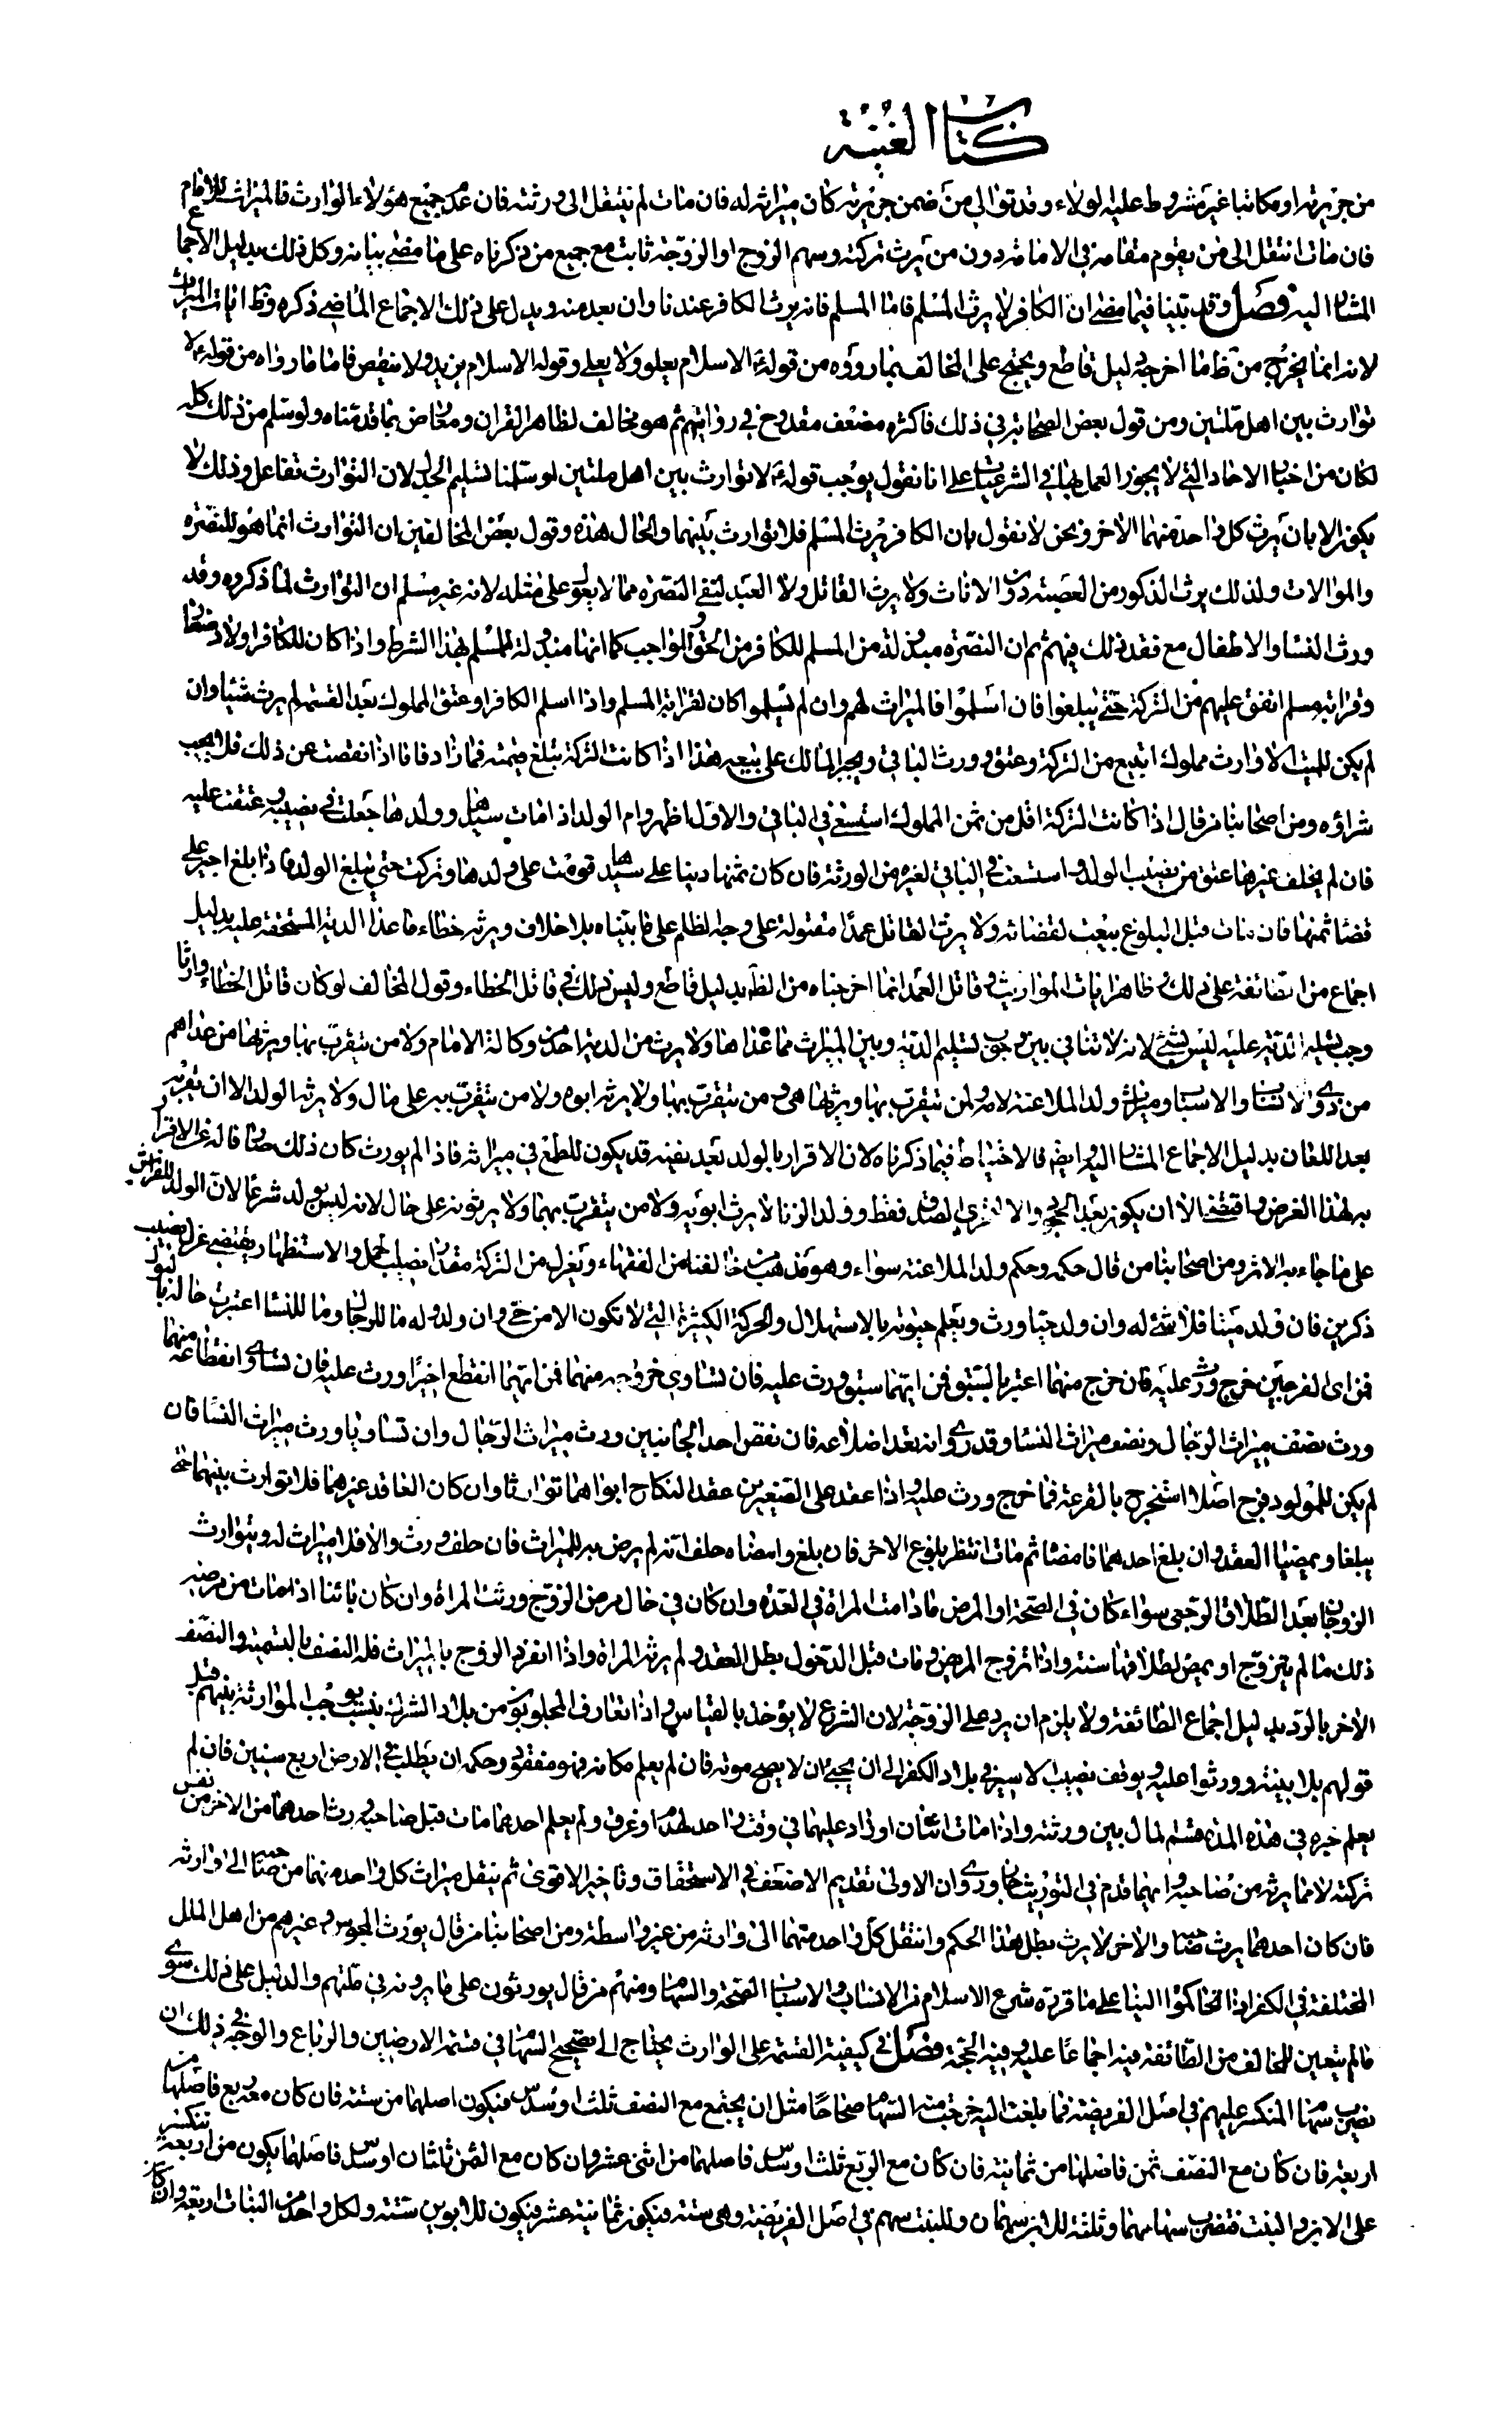 كتاب الغنية
من جريرته او مكاتبا غير مشروط عليه الولاء وقد توالى من ضمن جريرته كان ميراثه له فان مات لم ينتقل الى ورثته فان عدم جميع هؤلاء الوارث فالميراث للامام
فان مات انتقل الى من يقوم مقامه في الامامة دون من يرث تركته وسهم الزوج او الزوجة ثابت مع جميع من ذكرناه على ما مضى بيانه وكل ذلك بدليل الاجماع
المشار اليه فصل وقد بينا فيما مضى ان الكافر لا يرث المسلم فاما المسلم فانه يرث الكافر عندنا وان بعد منه ويدل على ذلك الاجماع الماضي ذكره وظ ايات الميراث
لانه انما يخرج من ظ ما اخرجه دليل قاطع ويحتج على المخالف بما رووه من قوله ع الاسلام يعلو ولا يعلى وقوله الاسلام يزيد ولا ينقص فاما ما رواه من قوله ع لا
توارث بين اهل ملتين ومن قول بعض الصحابة في ذلك فاكثره مضعف مقدوح في رواتهم ثم هو مخالف لظاهر القران ومعارض بما قدمناه ولو سلم من ذلك كله
لكان من اخبار الاحاد التي لا يجوز العمل بها في الشرعيات على انا نقول بموجب قوله ع لا توارث بين اهل ملتين لو سلمنا تسليم الجدل لان التوارث تفاعل وذلك لا
يكون الا بان يرث كل واحد منهما الاخر ونحن لا نقول بان الكافر يرث المسلم فلا توارث بينهما والحال هذه وقول بعض المخالفين ان التوارث انما هو للنصرة
والموالات ولذلك يرث الذكور من العصبة دون الاناث ولا يرث القاتل ولا العبد لنفي النصرة مما لا يعول على مثله لانه غير مسلم ان التوارث لما ذكروه وقد
ورث النساء والاطفال مع فقد ذلك فيهم ثم ان النصرة مبذولة من المسلم للكافر في الحق والواجب كما انها مبذولة للمسلم بهذا الشرط واذا كان للكافر اولاد صغار
وقرابة مسلم انفق عليهم من التركة حتى يبلغوا فان اسلموا فالميراث لهم وان لم يسلموا كان لقرابة المسلم واذا اسلم الكافر او عتق المملوك بعد القسمة لم يرث شيئا وان
لم يكن للميت الا وارث مملوك ابتيع من التركة وعتق وورث الباقي ويجبر المالك على بيعه هذا اذا كانت التركة تبلغ قيمته فما زاد فاما اذا نقصت عن ذلك فلا يجب
شراؤه ومن اصحابنا من قال اذا كانت التركة اقل من ثمن المملوك استسعى في الباقي والاول اظهر وام الولد اذا مات سيدها وولدها جعلت في نصيبه وعتقت عليه
فان لم يخلف غيرها عتق من نصيب الولد واستسعت في الباقي لغيره من الورثة فان كان ثمنها دينا على سيدها قومت على ولدها وتركت حتى يبلغ الولد فاذا بلغ اجبر على
قضاء ثمنها فان مات قبل البلوغ بيعت لقضائه ولا يرث القاتل عمدا مقتوله على وجه الظلم على ما بيناه بلا خلاف ويرثه خطاء ما عدا الدية المستحقة عليه بدليل
اجماع من الطائفة على ذلك وظاهر ايات المواريث وقاتل العمد انما اخرجناه من الظ بدليل قاطع وليس ذلك في قاتل الخطاء وقول المخالف لو كان قاتل الخطاء وارثا
وجب تسليم الدية عليه ليس بشيء لانه لا تنافي بين وجوب تسليم الدية وبين الميراث مما عداها ولا يرث من الدية احد من وكالة الامام ولا من يتقرب بها ويرثها من عداهم
من ذوي الانساب والاسباب وميراث ولد الملاعنة لامه ولمن يتقرب بها ويرثها هو ومن يتقرب بها ولا يرثه ابوه ولا من يتقرب به على حال ولا يرثه الولد الا ان يقر به
بعد اللعان بدليل الاجماع المشار اليه وايضا فالاحتياط فيما ذكرناه لان الاقرار بالولد بعد نفيه قد يكون للطمع في ميراثه فاذا لم يورث كان ذلك صارفا له عن الاقرار
به لهذا الغرض واقتضى الا ان يكون بعد الجحود الا لتحري الصدق فقط وولد الزنا لا يرث ابويه ولا من يتقرب بهما ولا يرثونه على حال لانه ليس بولد شرعا لان الولد للفراش
على ما جاء به الاثر ومن اصحابنا من قال حكمه حكم ولد الملاعنة سواء وهو مذهب من خالفنا من الفقهاء ويعزل من التركة مقدار نصيب الحمل والاستظهار يقتضي عزل نصيب
ذكرين فان ولد ميتا فلا شيء له وان ولد حيا ورث ويعلم حيوته بالاستهلال والحركة الكثيرة التي لا تكون الا من حي وان ولد وله ما للرجال وما للنساء اعتبرت حاله بالبول
فمن اى الفرجين خرج ورث عليه فان خرج منهما اعتبر بالسبق فمن ايهما سبق ورث عليه فان تساوي خروجه منهما فمن ايهما انقطع اخيرا ورث عليه فان تساوى انقطاعه منهما
ورث نصف ميراث الرجال ونصف ميراث النساء وقد روى انه تعد اضلاعه فان نقص احد الجانبين ورث ميراث الرجال وان تساويا ورث ميراث النساء فان
لم يكن للمولود فرج اصلا استخرج بالقرعة فما خرج ورث عليه واذا عقد على الصغيرين عقد النكاح ابواهما توارثا وان كان العاقد غيرهما فلا توارث بينهما حتى
يبلغا ويمضيا العقد وان بلغ احدهما فامضاه ثم مات انتظر بلوغ الاخر فان بلغ وامضاه حلف انه لم يرض به للميراث فان حلف ورث والا فلا ميراث له ويتوارث
الزوجان بعد الطلاق الرجعي سواء كان في الصحة او المرض ما دامت المراة في العدة وان كان في حال مرض الزوج ورثت المراة وان كان بائنا اذا مات من مرضه
ذلك ما لم يتزوج او يمض لطلاقها سنة واذا تزوج المريض ومات قبل الدخول بطل العقد ولم يرثه المراة واذا انفرد الزوج بالميراث فله النصف بالتسمية والنصف
الاخر بالرد بدليل اجماع الطائفة ولا يلزم ان يرد على الزوجة لان الشرع لا يؤخذ بالقياس واذا تعارف المجلوبون من بلاد الشرك بنسب يوجب الموارثة بينهم قبل
قولهم بلا بينة وورثوا عليه ويوقف نصيب الاسير في بلاد الكفر الى ان يجئ او يصح موته فان لم يعلم مكانه فهو مفقود وحكمه ان يطلب في الارض اربع سنين فان لم
يعلم خبره في هذه المدة قسم المال بين ورثته واذا مات اثنان او زاد عليهما في وقت واحد لهدم او غرق ولم يعلم احدهما مات قبل صاحبه ورث احدهما من الاخر من نفس
تركته لا مما يرثه من صاحبه وايهما قدم في التوريث جاز وروى ان الاولى تقديم الاضعف في الاستحقاق وتاخير الاقوى ثم ينقل ميراث كل واحد منهما من صاحبه الى وارثه
فان كان احدهما يرث صاحبه والاخر لا يرث بطل هذا الحكم وانتقل كل واحد منهما الى وارثه من غير واسطة ومن اصحابنا من قال يورث المجوس وغيرهم من اهل الملل
المختلفة في الكفر اذا تحاكموا الينا على ما قرره شرع الاسلام من الانساب والاسباب الصحيحة والسهام ومنهم من قال يورثون على ما يرونه في ملتهم والدليل على ذلك سوى
ما لم يتعين للمخالف من الطائفة فيه اجماعا عليه وفيه الحجة فصل في كيفية القسمة على الوارث يحتاج الى تصحيح السهام في قسمة الارضين والرباع والوجه في ذلك ان
نضرب سهام المنكسر عليهم في اصل الفريضة فما بلغت اليه خرجت منه السهام صحاحا مثل ان يجتمع مع النصف ثلث او سدس فيكون اصلهما من ستة فان كان معه ربع فاصلها من
اربعة فان كان مع النصف ثمن فاصلها من ثمانية فان كان مع الربع ثلث او سدس فاصلهما من اثنى عشر وان كان مع الثمن ثلثان او سدس فاصلهما يكون من اربعة
على الابن والبنت فتضرب سهامهما وثلثة للابن سهمان وللبنت سهم في اصل الفريضة وهي ستة فيكون ثمانية عشر فيكون للابوين ستة ولكل واحد من البنات اربعة وان كان